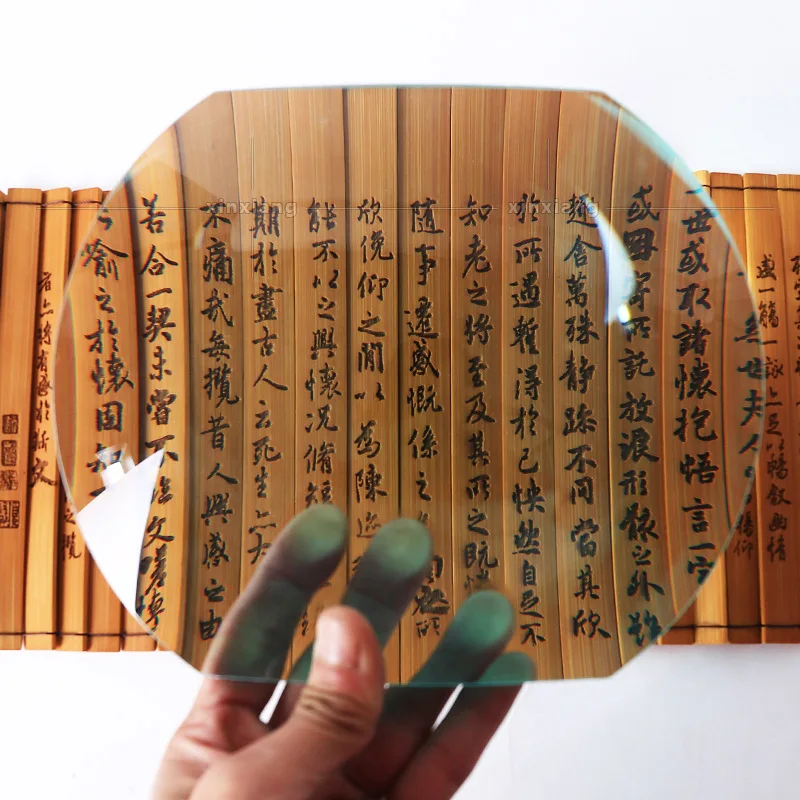 盛一觴一詠亦足以暢敘幽情
仰
夫人
世或取諸懷抱悟言一室
或因寄所託放浪形骸之外雖
趣舍萬殊靜躁不同當其欣
於所遇暫得於己怏然自足不
知老之將至及其所之既惓
隨事遷感慨係之向之所
欣俛仰之閒以為陳迹
能不以之興懷況脩短
期於盡古人云死生亦大
不痛哉每攬昔人興感之由
若合一契未嘗不臨文嗟悼
喻之於懷固知
之攬
者亦將有感於斯文
xinxiang
xinxiang